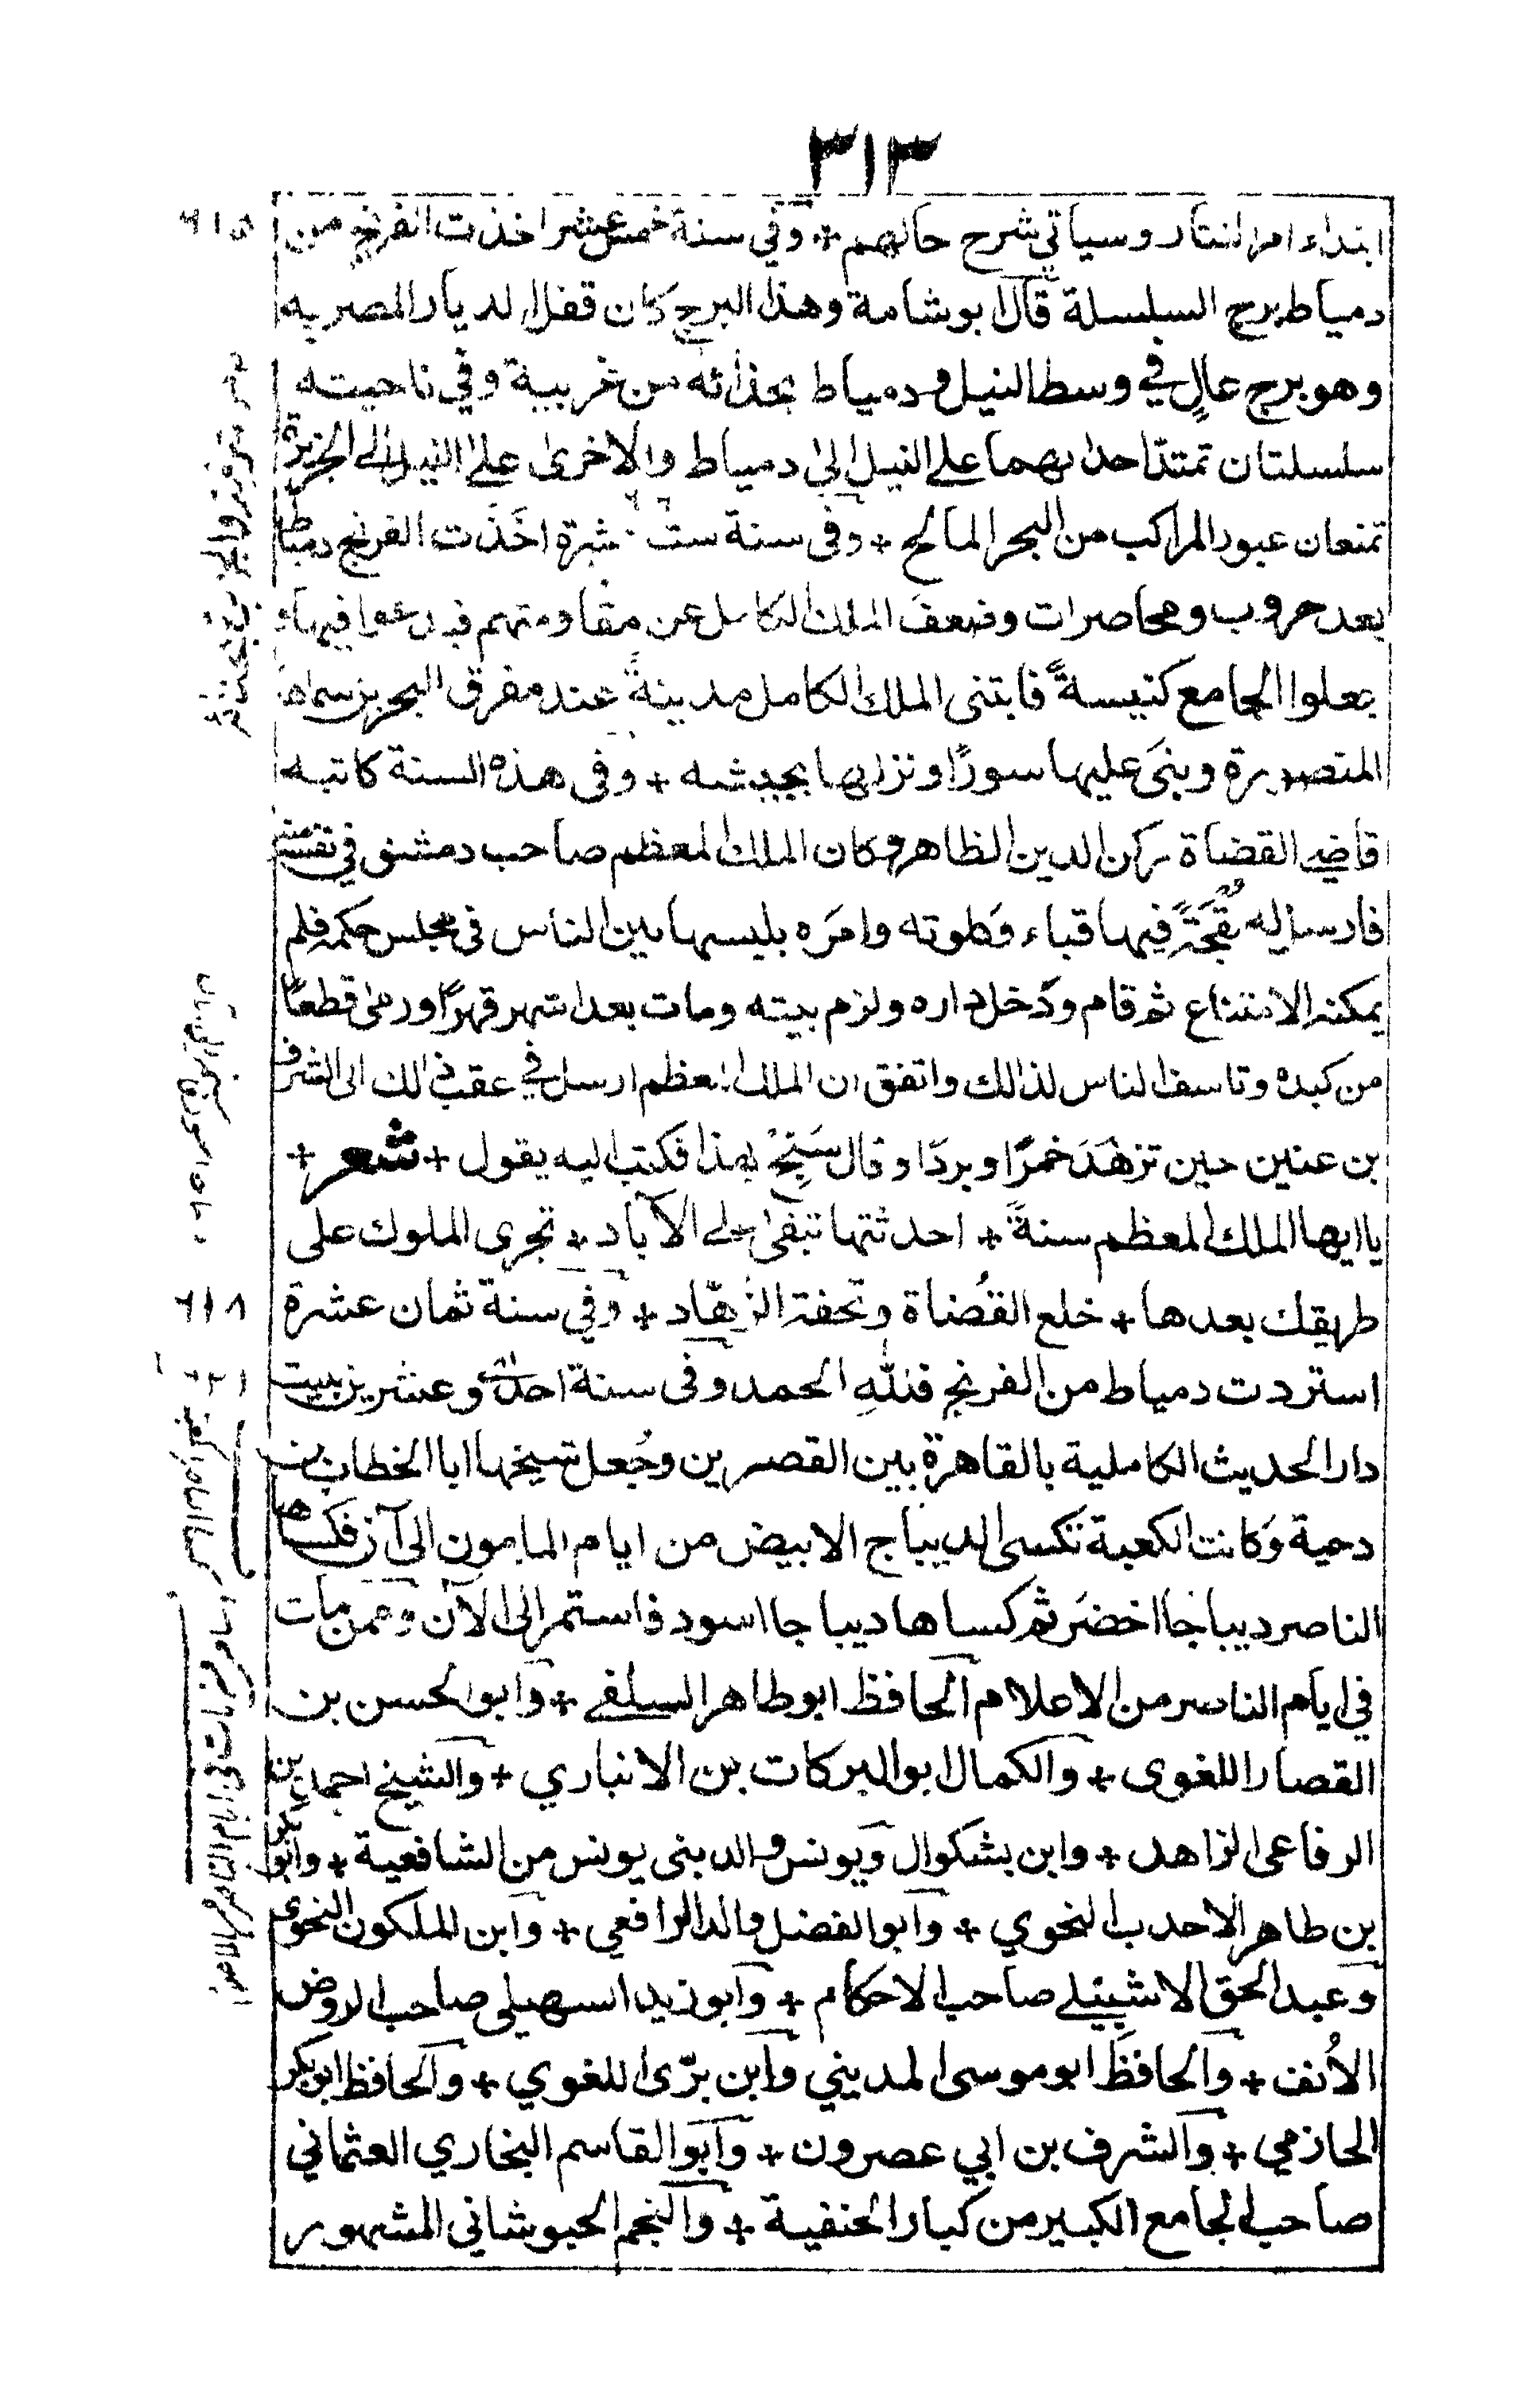 ٣١٣
ابتداء امر التتار وسياتي شرح حالهم + وفي سنة خمس عشر اخذت الفرنج من
٦١٥
دمياط برج السلسلة قال ابو شامة وهذا البرج كان قفل الديار المصريه
وهو برج عالٍ في وسط النيل و دمياط بحذائه من غربيية وفي ناحيته
سلسلتان تمتد احدٰىهما على النيل الى دمياط والاخرى على النيل الى الجزيرة
تمنعان عبور المراكب من البحر المالح + وفى سنة ست عشرة اخذت الفرنج دمياط
بعد حروب ومحاصرات وضعف الملك الكامل عن مقاومتهم فبدعوا فيها و
جعلوا الجامع كنيسةً فابتنى الملك الكامل مدينةً عند مفرق البحرين سماها
المنصورة وبنى عليها سورًا ونزلها بجيشه + وفى هذه السنة كاتبه
قاضي القضاة ركن الدين الظاهر وكان الملك المعظم صاحب دمشق في نفسه منه
فارسل اليه بُقجَةً فيها قباء وكلوته وامَره بلبسها بين الناس فى مجلس حكمه فلم
يمكنه الامتناع ثم قام ودخل داره ولزم بيته ومات بعد اشهر قهرًا ورمى قطعًا
من كبده وتاسف الناس لذالك واتفق ان الملك المعظم ارسل في عقب ذالك الى الشرف
بن عنين حين تزهَّدَ خمرًا وبردًا وقال سَبِّحْ بهذا فكتب اليه يقول + شعر +
يا ايها الملك المعظم سنةً + احدثتها تبقى على الآباد + تجرى الملوك على
طريقك بعدها + خلع القُضاة وتحفة الزهّاد + وفي سنة ثمان عشرة
٦١٨
استردت دمياط من الفرنج فللّٰهِ الحمد وفى سنة احدى وعشرين بنيت
٦٢١
دار الحديث الكاملية بالقاهرة بين القصرين وجُعل شيخها ابا الخطاب بن
دحية وَكانت الكعبة تكسى الديباج الابيض من ايام المامون الى آن فكساها
الناصر ديباجا اخضَر ثم كساها ديباجا اسود فاستمر الى الآن وممن مات
في ايام الناصر من الاعلام الحافظ ابو طاهر السلفے + وابو الحسن بن
القصار اللغوى + والكمال ابو البركات بن الانباري + والشيخ احمد بن
الرفاعى الزاهد + وابن بشكوال ويونس والد بنى يونس من الشافعية + وابو بكر
بن طاهر الاحدب النحوي + وابو الفضل والد الرافعي + وابن الملكون النحوى
وعبد الحق الاشبيلے صاحب الاحكام + وابو زيد السهيلى صاحب الروض
الاُنف + والحافظ ابو موسى المديني وابن برّى اللغوي + والحافظ ابو بكر
الحازمي + والشرف بن ابي عصرون + وابو القاسم البخاري العثماني
صاحب الجامع الكبير من كبار الحنفية + والنجم الحبوشانى المشهور